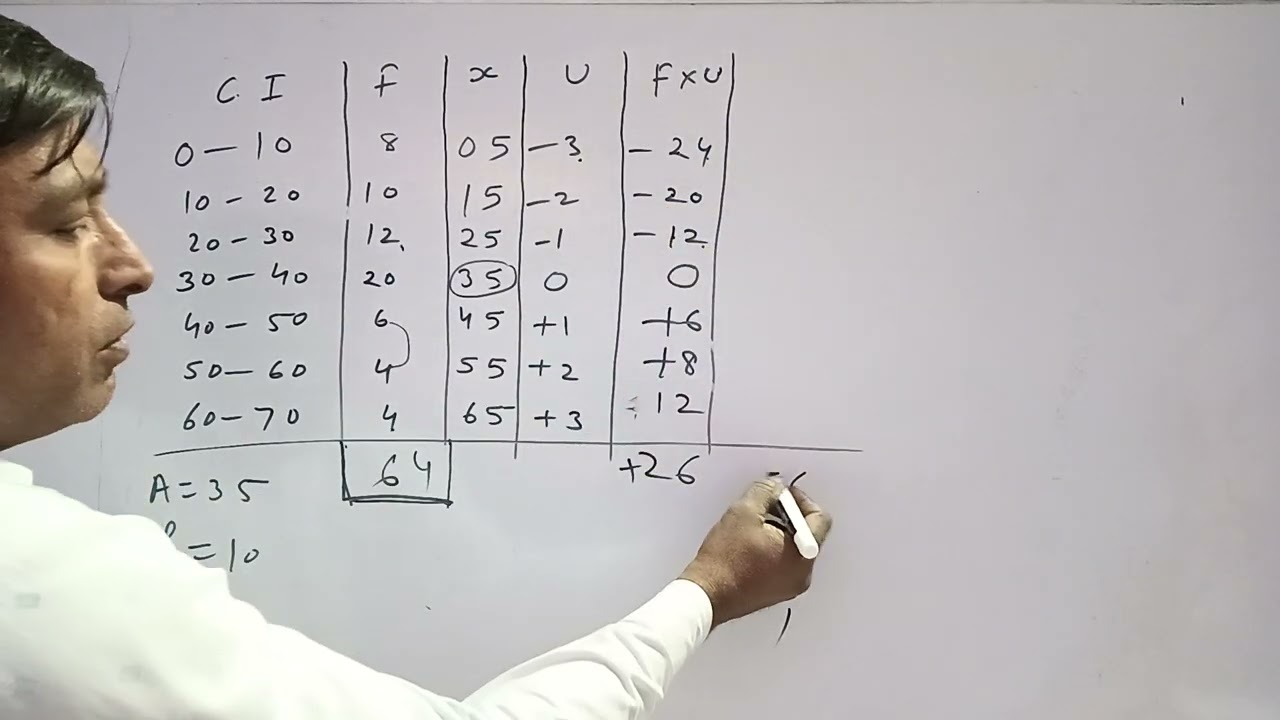 C. I F x U F x U
0 — 10 8 05 — 3 — 24
10 – 20 10 15 – 2 – 20
20 – 30 12 25 – 1 – 12
30 — 40 20 35 0 0
40 – 50 6 45 + 1 + 6
50 — 60 4 55 + 2 + 8
60 – 70 4 65 + 3 12
64 + 26
A = 35
= 10